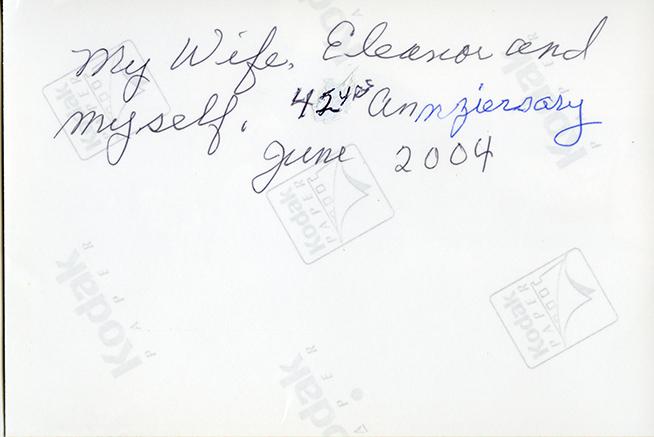 My Wife, Eleanor and
myself, 42yrs Annziersary
June 2004
Kodak
PAPER
Kodak
PAPER
Kodak
PAPER
Kodak
PAPER
Kodak
PAPER
Kodak
PAPER